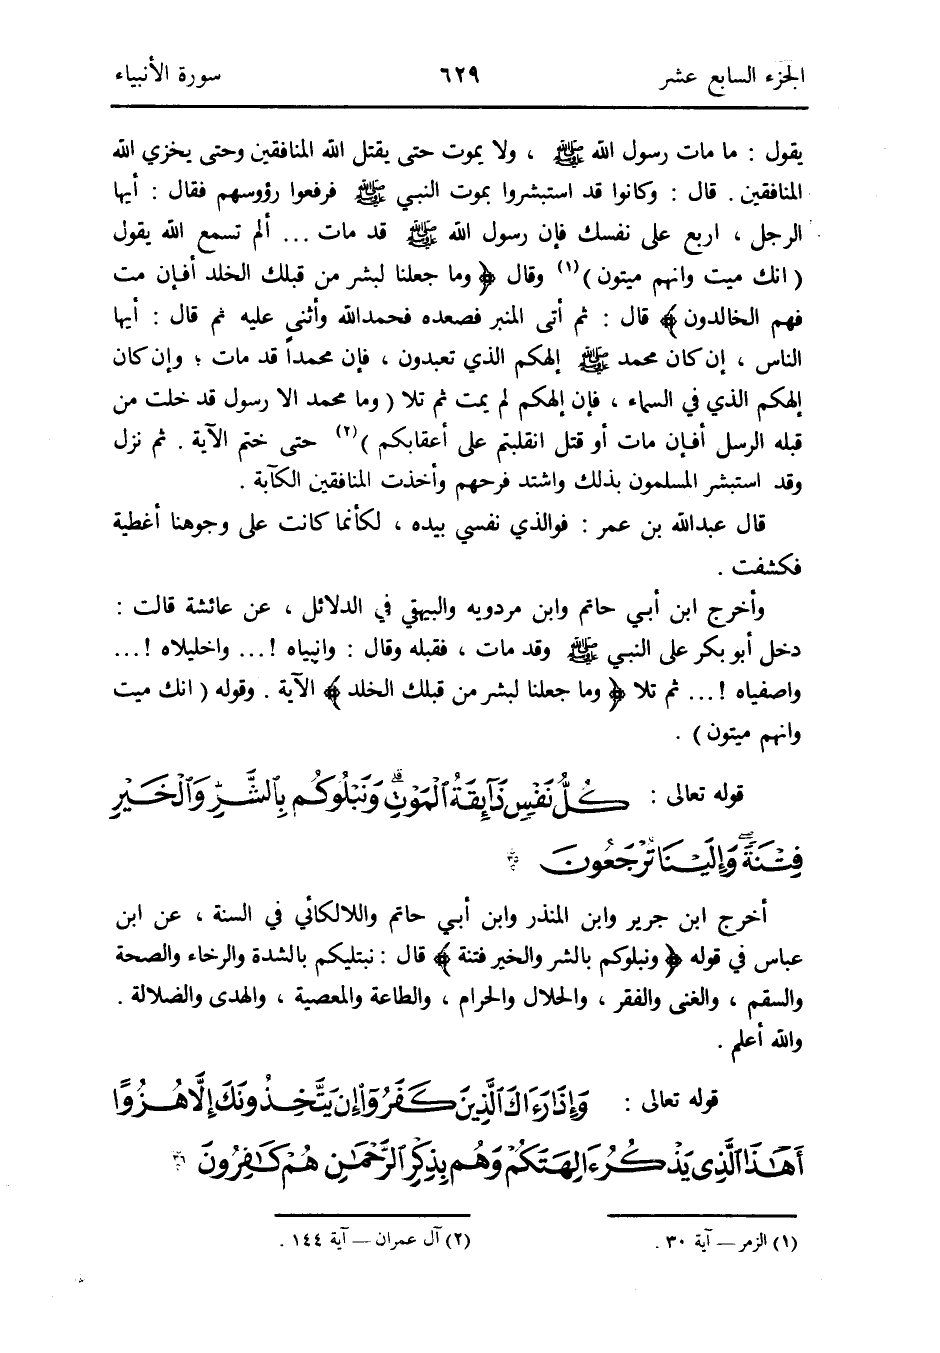 الجزء السابع عشر ٦٢٩ سورة الأنبياء
يقول : ما مات رسول الله ﷺ ، ولا يموت حتى يقتل الله المنافقين وحتى يخزي الله
المنافقين . قال : وكانوا قد استبشروا بموت النبي ﷺ فرفعوا رؤوسهم فقال : أيها
الرجل ، اربع على نفسك فإن رسول الله ﷺ قد مات ... ألم تسمع الله يقول
( انك ميت وانهم ميتون )(١) وقال ﴿ وما جعلنا لبشر من قبلك الخلد أفإن مت
فهم الخالدون ﴾ قال : ثم أتى المنبر فصعده فحمدالله وأثنى عليه ثم قال : أيها
الناس ، إن كان محمد ﷺ إلهكم الذي تعبدون ، فإن محمداً قد مات ؛ وإن كان
إلهكم الذي في السماء ، فإن إلهكم لم يمت ثم تلا ( وما محمد الا رسول قد خلت من
قبله الرسل أفإن مات أو قتل انقلبتم على أعقابكم )(٢) حتى ختم الآية . ثم نزل
وقد استبشر المسلمون بذلك واشتد فرحهم وأخذت المنافقين الكآبة .
قال عبدالله بن عمر : فوالذي نفسي بيده ، لكأنما كانت على وجوهنا أغطية
فكشفت .
وأخرج ابن أبي حاتم وابن مردويه والبيهقي في الدلائل ، عن عائشة قالت :
دخل أبو بكر على النبي ﷺ وقد مات ، فقبله وقال : وانبياه !... واخليلاه !...
واصفياه !... ثم تلا ﴿ وما جعلنا لبشر من قبلك الخلد ﴾ الآية . وقوله ( انك ميت
وانهم ميتون ) .
قوله تعالى : كُلُّ نَفْسٍ ذَآئِقَةُ ٱلْمَوْتِۗ وَنَبْلُوكُم بِٱلشَّرِّ وَٱلْخَيْرِ
فِتْنَةًۖ وَإِلَيْنَا تُرْجَعُونَ ٣٥
أخرج ابن جرير وابن المنذر وابن أبي حاتم واللالكائي في السنة ، عن ابن
عباس في قوله ﴿ ونبلوكم بالشر والخير فتنة ﴾ قال : نبتليكم بالشدة والرخاء والصحة
والسقم ، والغنى والفقر ، والحلال والحرام ، والطاعة والمعصية ، والهدى والضلالة .
والله أعلم .
قوله تعالى : وَإِذَا رَءَاكَ ٱلَّذِينَ كَفَرُوٓا۟ إِن يَتَّخِذُونَكَ إِلَّا هُزُوًا
أَهَٰذَا ٱلَّذِى يَذْكُرُ ءَالِهَتَكُمْ وَهُم بِذِكْرِ ٱلرَّحْمَٰنِ هُمْ كَٰفِرُونَ ٣٦
(١) الزمر – آية ٣٠ . (٢) آل عمران – آية ١٤٤ .